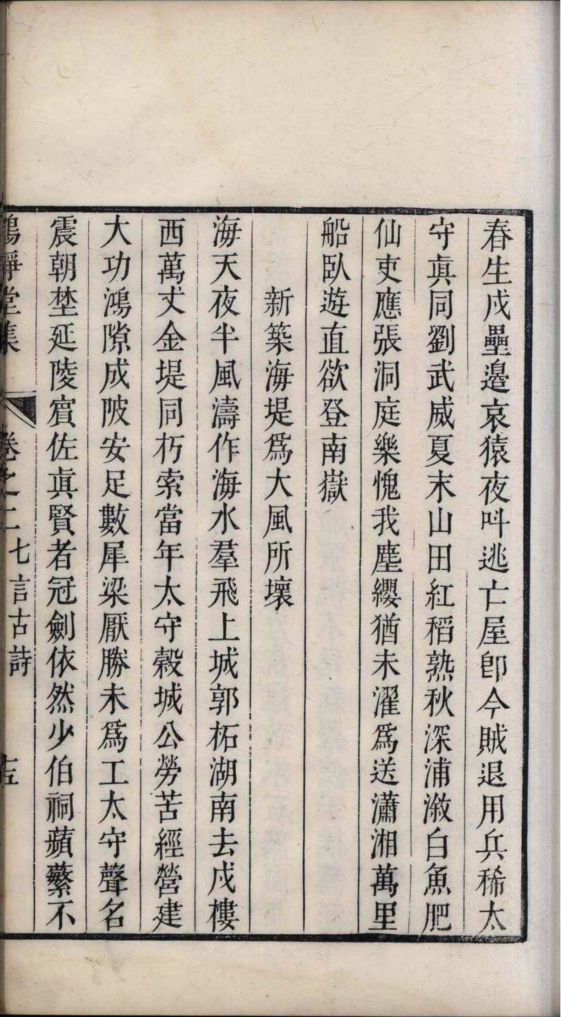 春生戍壘邊哀猿夜呌逃亡屋卽今賊退用兵稀太
守眞同劉武威夏末山田紅稻熟秋深浦漵白魚肥
仙吏應張洞庭樂愧我塵纓猶未濯爲送瀟湘萬里
船臥遊直欲登南嶽
新築海堤爲大風所壞
海天夜半風濤作海水羣飛上城郭柘湖南去戍樓
西萬丈金堤同朽索當年太守穀城公勞苦經營建
大功鴻隙成陂安足數犀梁厭勝未爲工太守聲名
震朝埜延陵賓佐眞賢者冠劍依然少伯祠蘋蘩不
靜堂集
卷之二
七言古詩